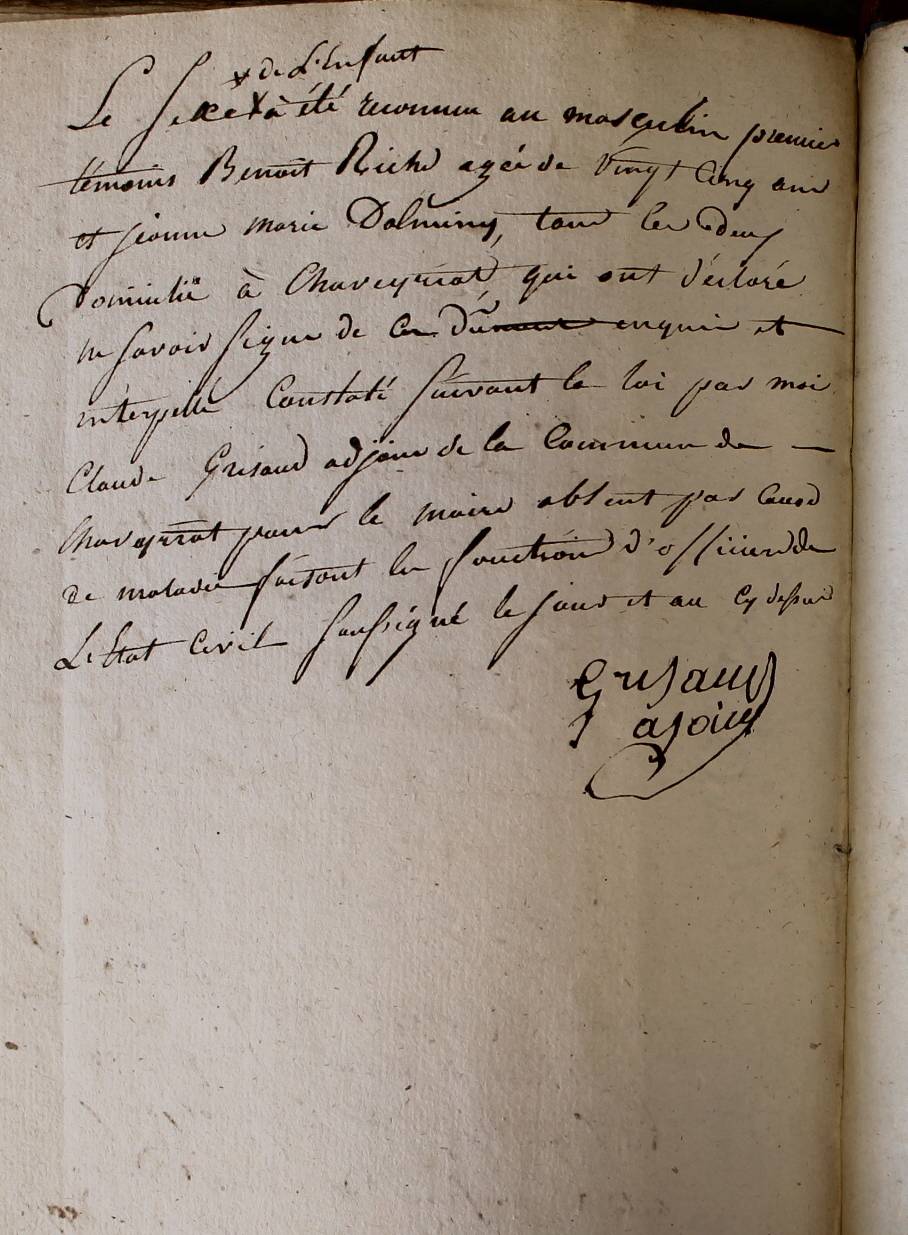 x de L'Enfant
Le Sexe x à été reconnu au masculin premier
témoins Benoît Riche agée de Vingt Cinq ans
et jeanne marie Dalminy, tous les deux
Domicilié à Chaveyriat qui ont déclaré
ne savoir signe de ce Dûment enquis et
interpellé Constaté suivant la loi par moi
Claude Grisaud adjoint de la Commune de —
Chaveyriat pour le maire absent par cause
de maladie faisant les fonction d'officier de
L'Etat Civil soussigné le jour et an cy dessus
Grisaud
ajoint